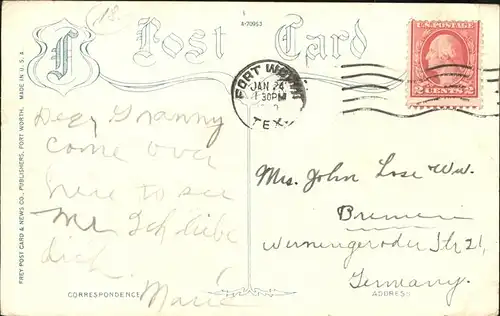 18.
A-70953
Post Card
U.S. POSTAGE
2 CENTS 2
FORT WORTH
JAN 24
30 PM
TEX.
MADE IN U.S.A.
FREY POST CARD & NEWS CO., PUBLISHERS, FORT WORTH.
Dear Granny
come over
here to see
me. Ich liebe
dich.
Marie
CORRESPONDENCE
Mrs. John Lose Ww.
Bremen
Werningeroder Str 21,
Germany.
ADDRESS